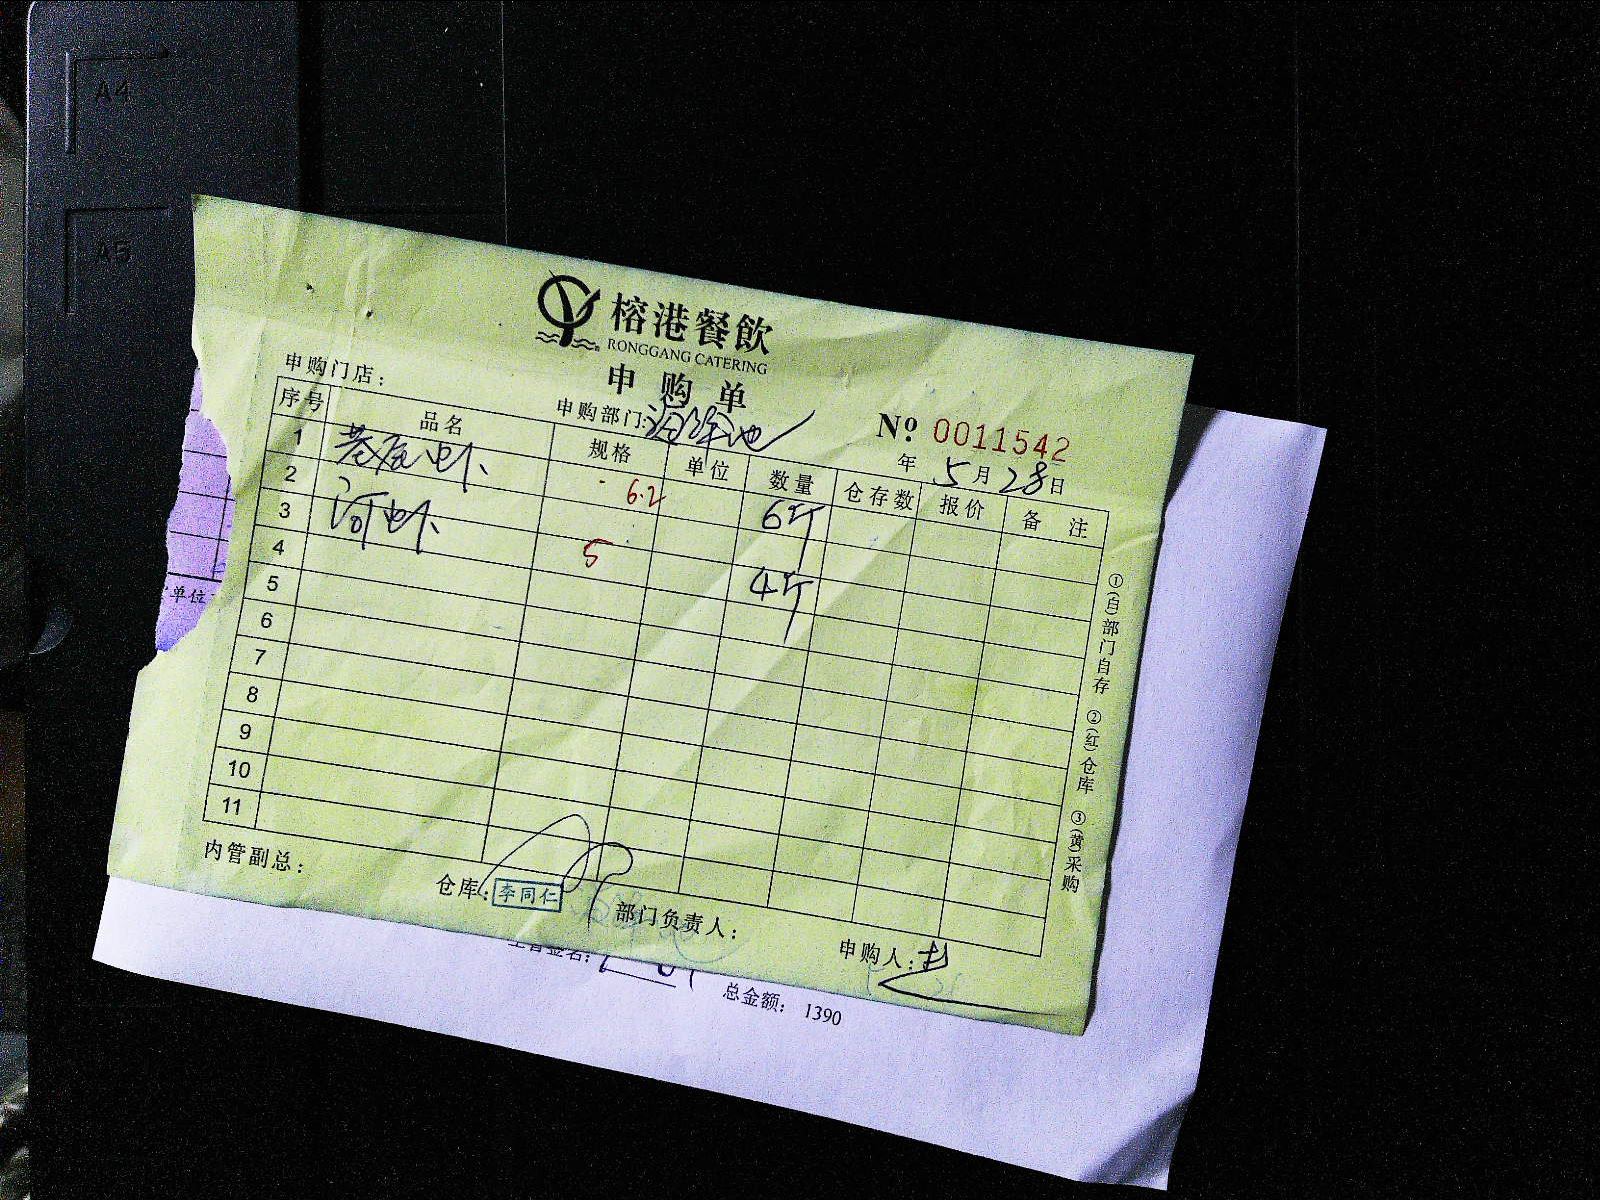 A4
A5
榕港餐飲
RONGGANG CATERING
申购单
申购门店：
申购部门：海鲜池
№ 0011542
年 5月28日
序号 品名 规格 单位 数量 仓存数 报价 备注
1 基尾虾 6.2 6斤
2
3 河虾 5 4斤
4
5
6
7
8
9
10
11
①(白)部门自存 ②(红)仓库 ③(黄)采购
内管副总：
仓库：李同仁
部门负责人：
申购人：
单位
总金额： 1390